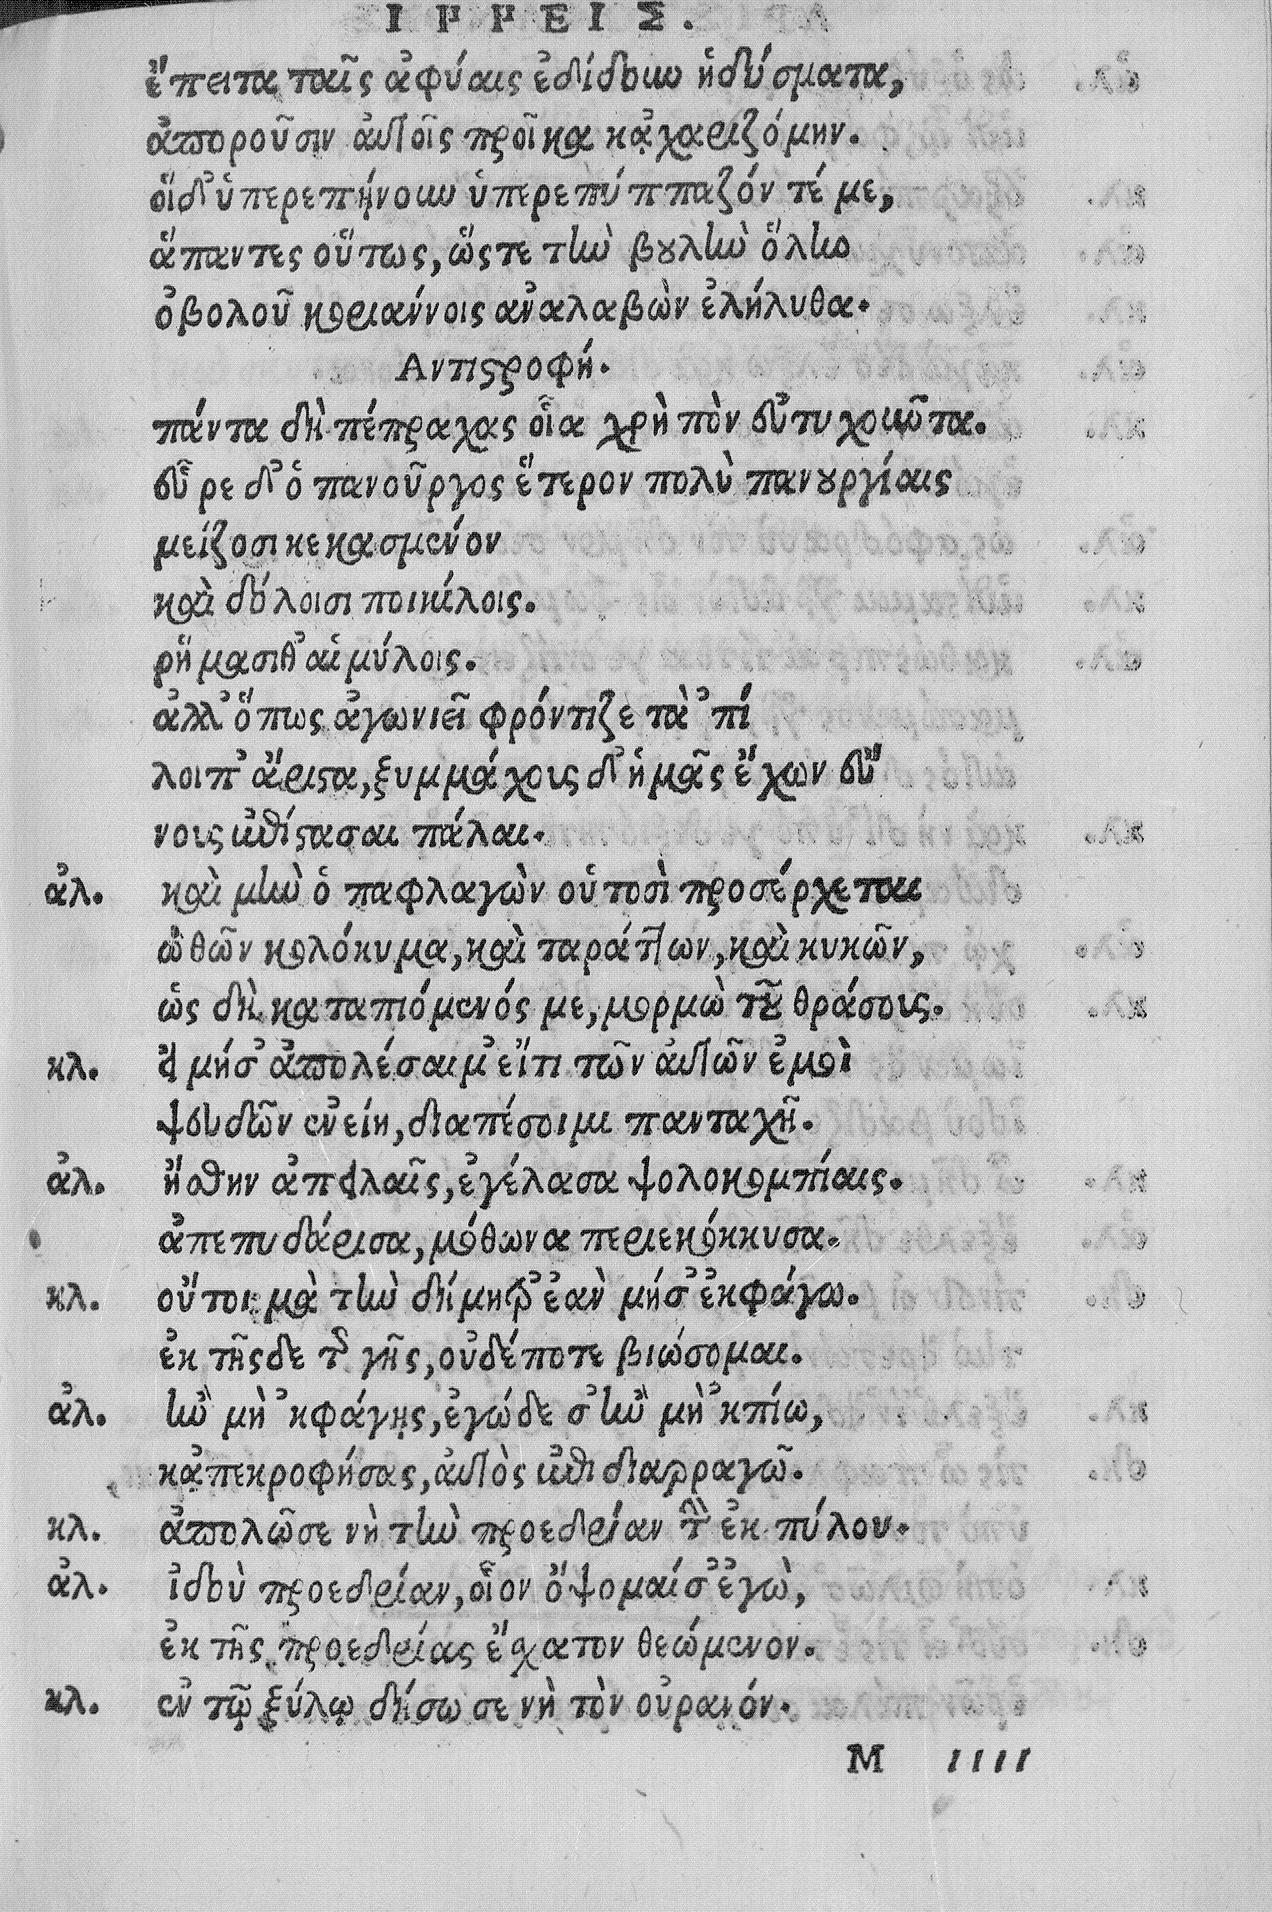 ΙΠΠΕΙΣ.
ἔπειτα ταῖς ἀφύαις ἐδίδουν ἡδύσματα,
ἀποροῦσιν αὐτοῖς προῖκα κᾀχαριζόμην.
οἵδ' ὑπερεπήνουν ὑπερεπύππαζόν τέ με,
ἅπαντες οὕτως, ὥςτε τὴν βουλὴν ὅλην
ὀβολοῦ κοριάννοις ἀναλαβὼν ἐλήλυθα.
Αντιστροφή.
πάντα δὴ πέπραχας οἷα χρὴ τὸν εὐτυχοῦντα.
εὗρε δ' ὁ πανοῦργος ἕτερον πολὺ πανουργίαις
μείζοσι κεκασμένον
καὶ δόλοισι ποικίλοις.
ῥήμασιθ' αἱμύλοις.
ἀλλ' ὅπως ἀγωνιεῖ φρόντιζε τὰ 'πί
λοιπ' ἄριστα, ξυμμάχους δ' ἡμᾶς ἔχων εὔ
νους ἐπίστασαι πάλαι.
ἀλ. καὶ μὴν ὁ παφλαγὼν οὑτοσὶ προσέρχεται
ὠθῶν κολόκυμα, καὶ ταράττων, καὶ κυκῶν,
ὡς δὴ καταπιόμενός με, μορμὼ τοῦ θράσους.
κλ. εἰ μήσ' ἀπολέσαιμ' εἴτι τῶν αὐτῶν ἐμοὶ
ψευδῶν ἐνείη, διαπέσοιμι πανταχῆ.
ἀλ. ἥσθην ἀπειλαῖς, ἐγέλασα ψολοκομπίαις.
ἀπεπυδάρισα, μόθωνα περιεκόκκυσα.
κλ. οὔτοι μὰ τὴν δήμητρ' ἐὰν μήσ' ἐκφάγω.
ἐκ τῆςδε τῆς γῆς, οὐδέποτε βιώσομαι.
ἀλ. ἢν μὴ 'κφάγῃς, ἐγώδε σ' ἢν μὴ 'κπίω,
κᾀπεκροφήσας, αὐτὸς ἐπιδιαρραγῶ.
κλ. ἀπολῶσε νὴ τὴν προεδρίαν τὴν ἐκ πύλου.
ἀλ. ἰδοὺ προεδρίαν, οἷον ὄψομαίσ' ἐγὼ,
ἐκ τῆς προεδρίας ἔσχατον θεώμενον.
κλ. ἐν τῷ ξύλῳ δήσω σε νὴ τὸν οὐρανόν.
Μ ιιιι